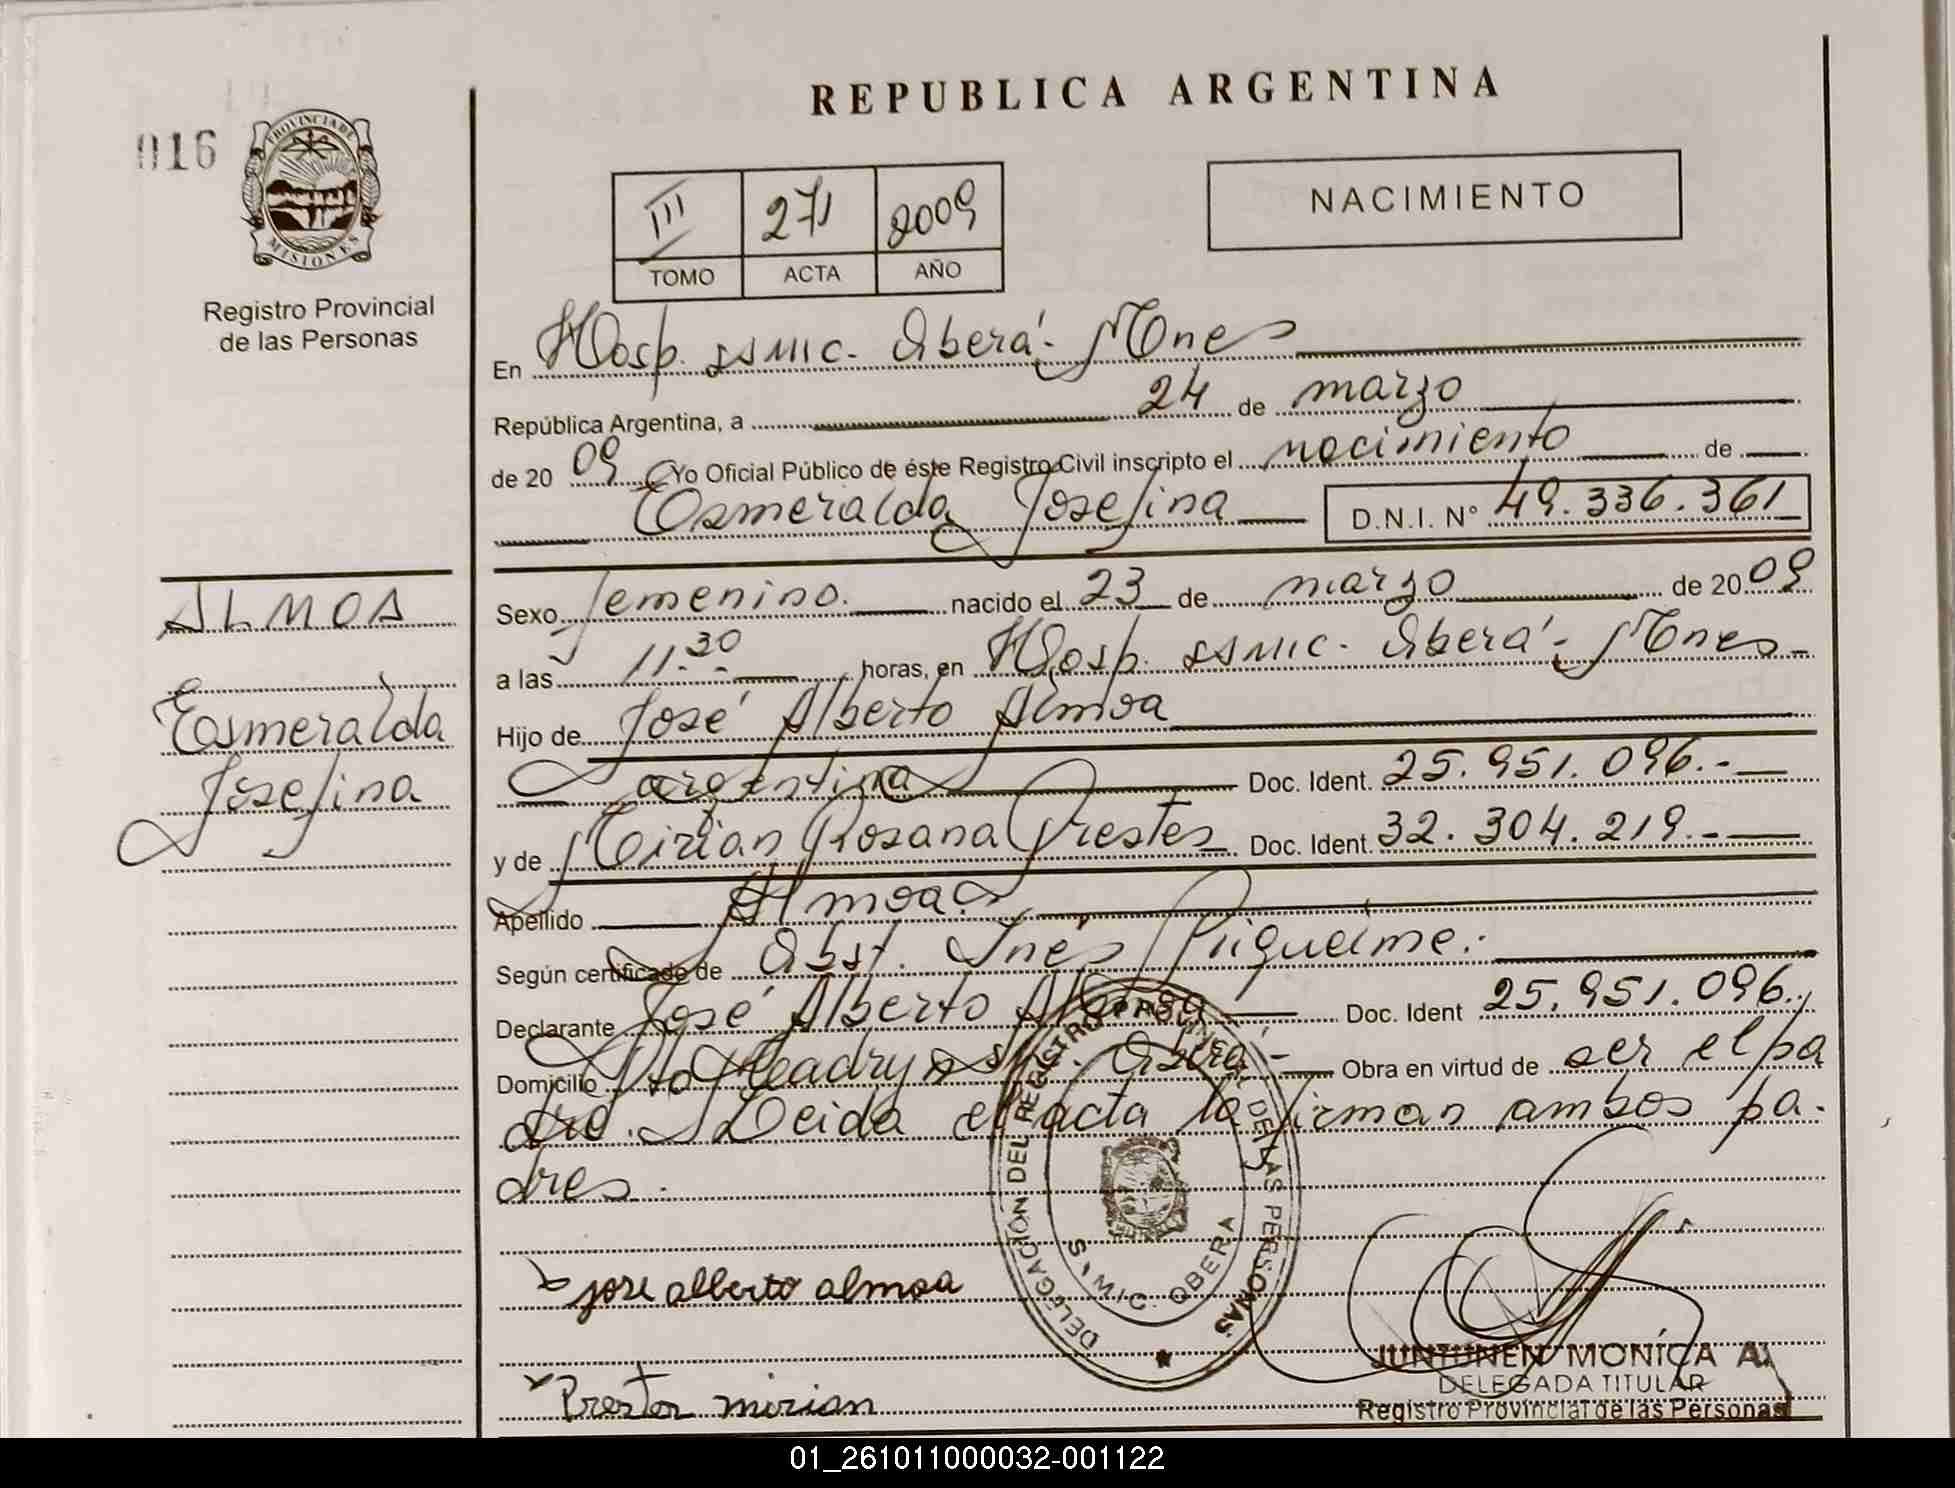 REPUBLICA ARGENTINA
016
PROVINCIA DE
MISIONES
Registro Provincial
de las Personas
NACIMIENTO
III 271 2009
TOMO ACTA AÑO
En Hosp. SSMIC. Oberá - Mnes
República Argentina, a 24 de marzo
de 2009 Yo Oficial Público de éste Registro Civil inscripto el nacimiento de
Esmeralda Josefina D.N.I. N° 49.336.361
Sexo femenino. nacido el 23 de marzo de 2009
a las 11.30 horas, en Hosp. SSMIC. Oberá - Mnes
Hijo de José Alberto Almoa
argentina Doc. Ident. 25.951.096.-
y de Mirian Rosana Prestes Doc. Ident. 32.304.219.-
Apellido Almoa
Según certificado de Obst. Inés Piqueime.
Declarante José Alberto Almoa Doc. Ident 25.951.096.
Domicilio Pto Madryn Oberá - Obra en virtud de ser el pa
dre. Leida el acta la firman ambos pa-
dres.
ALMOA
Esmeralda
Josefina
jose alberto almoa
Prester mirian
DELEGACIÓN DEL REGISTRO PROVINCIAL DE LAS PERSONAS
S. MIC. OBERA
JUNTUNEN MONÍCA A.
DELEGADA TITULAR
Registro Provincial de las Personas
01_261011000032-001122